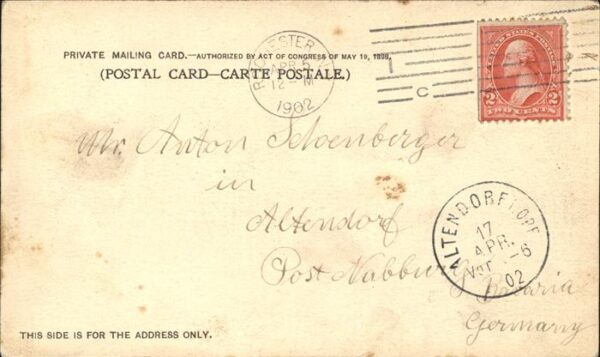 PRIVATE MAILING CARD.—AUTHORIZED BY ACT OF CONGRESS OF MAY 19, 1898.
(POSTAL CARD—CARTE POSTALE.)
ROCHESTER, N.Y.
APR 5
12 - M
1902
1
C
2 2
TWO CENTS
Mr. Anton Schoenberger
in
Altendorf
Post Nabburg
Bavaria
Germany
ALTENDORF OPF.
17
APR.
5-6
02
THIS SIDE IS FOR THE ADDRESS ONLY.